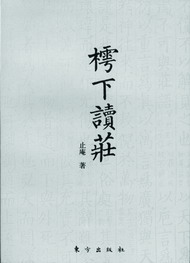 樗下讀莊
止庵 著
東方出版社